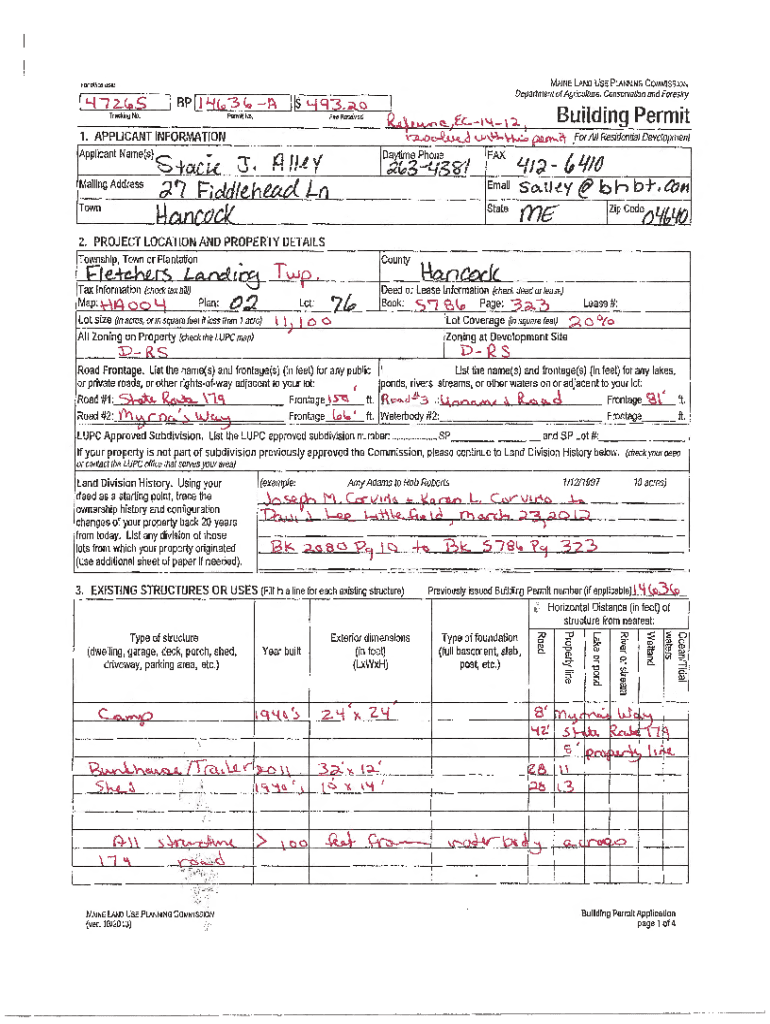 For office use:
MAINE LAND USE PLANNING COMMISSION
Department of Agriculture, Conservation and Forestry
47265 BP 14636-A $ 493.20
Tracking No. Permit No. Fee Received
EC-14-12,
resolved with this permit
Building Permit
For All Residential Development
1. APPLICANT INFORMATION
Applicant Name(s) Stacie J. Alley
Daytime Phone 263-4381
FAX 412-6410
Mailing Address 27 Fiddlehead Ln
Email salley@bhbt.com
Town Hancock
State ME
Zip Code 04640
2. PROJECT LOCATION AND PROPERTY DETAILS
Township, Town or Plantation Fletchers Landing Twp.
County Hancock
Tax Information (check tax bill)
Map: HA004 Plan: 02 Lot: 76
Deed or Lease Information (check deed or lease)
Book: 5786 Page: 323 Lease #:
Lot size (in acres, or in square feet if less than 1 acre) 11,100
Lot Coverage (in square feet) 20%
All Zoning on Property (check the LUPC map)
D-RS
Zoning at Development Site
D-RS
Road Frontage. List the name(s) and frontage(s) (in feet) for any public
or private roads, or other rights-of-way adjacent to your lot:
Road #1: State Route 179 Frontage 150' ft.
Road #2: Myrna's Way Frontage 66' ft.
List the name(s) and frontage(s) (in feet) for any lakes,
ponds, rivers, streams, or other waters on or adjacent to your lot:
Road #3 Unnamed Road Frontage 81' ft.
Waterbody #2: Frontage ft.
LUPC Approved Subdivision. List the LUPC approved subdivision number: SP and SP Lot #:
If your property is not part of subdivision previously approved the Commission, please continue to Land Division History below. (check your deed
or contact the LUPC office that serves your area)
Land Division History. Using your
deed as a starting point, trace the
ownership history and configuration
changes of your property back 20 years
from today. List any division of those
lots from which your property originated
(use additional sheet of paper if needed).
(example: Amy Adams to Rob Roberts 1/12/1997 10 acres)
Joseph M. Corvino & Karen L. Corvino to
David Lee Littlefield, March 23, 2012
BK 2080 Pg 10 to BK 5786 Pg 323
3. EXISTING STRUCTURES OR USES (Fill in a line for each existing structure)
Previously issued Building Permit number (if applicable) 14636
Type of structure
(dwelling, garage, deck, porch, shed,
driveway, parking area, etc.)
Year built
Exterior dimensions
(in feet)
(LxWxH)
Type of foundation
(full basement, slab,
post, etc.)
Horizontal Distance (in feet) of
structure from nearest:
Road
Property line
Lake or pond
River or stream
Wetland
Ocean/Tidal
waters
Camp 1940's 24' x 24' 8' Myrna's Way
42' State Route 179
property line
Bunkhouse/Trailer 2011 32' x 12' 28 11
Shed 1940's 10' x 14' 28 13
All structure > 100 feet from waterbody across
179 road
MAINE LAND USE PLANNING COMMISSION
(ver. 10/2013)
Building Permit Application
page 1 of 4